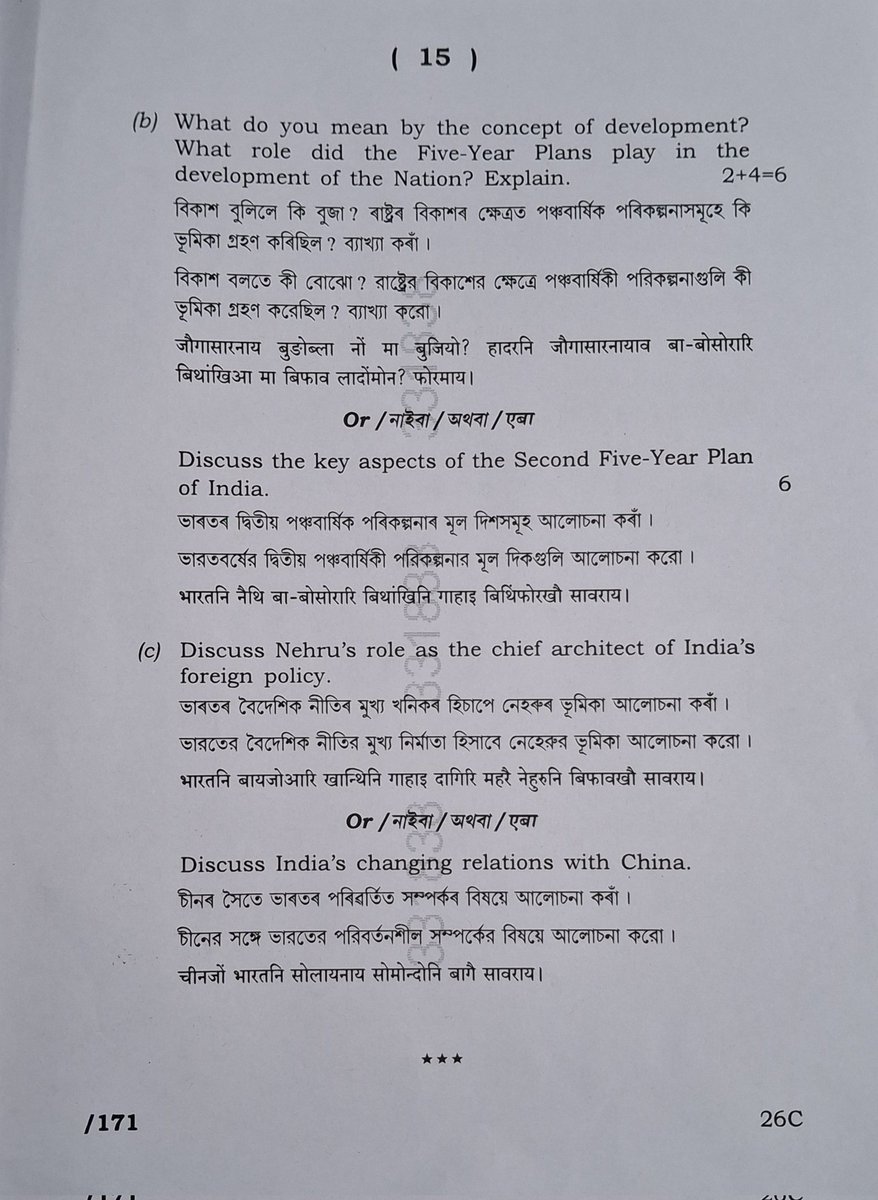 ( 15 )
(b) What do you mean by the concept of development?
What role did the Five-Year Plans play in the
development of the Nation? Explain. 2+4=6
বিকাশ বুলিলে কি বুজা? ৰাষ্ট্ৰৰ বিকাশৰ ক্ষেত্ৰত পঞ্চবাৰ্ষিক পৰিকল্পনাসমূহে কি
ভূমিকা গ্ৰহণ কৰিছিল? ব্যাখ্যা কৰাঁ।
বিকাশ বলতে কী বোঝো? রাষ্ট্রের বিকাশের ক্ষেত্রে পঞ্চবার্ষিকী পরিকল্পনাগুলি কী
ভূমিকা গ্রহণ করেছিল? ব্যাখ্যা করো।
जौगासारनाय बुङोब्ला नों मा बुजियो? हादरनि जौगासारनायाव बा-बोसोरारि
बिथांखिआ मा बिफाव लादोंमोन? फोरमाय।
Or / নাইবা / অথবা / एबा
Discuss the key aspects of the Second Five-Year Plan
of India. 6
ভাৰতৰ দ্বিতীয় পঞ্চবাৰ্ষিক পৰিকল্পনাৰ মূল দিশসমূহ আলোচনা কৰাঁ।
ভারতবর্ষের দ্বিতীয় পঞ্চবার্ষিকী পরিকল্পনার মূল দিকগুলি আলোচনা করো।
भारतनि नैथि बा-बोसोरारि बिथांखिनि गाहाइ बिथिंफोरखौ सावराय।
(c) Discuss Nehru's role as the chief architect of India's
foreign policy.
ভাৰতৰ বৈদেশিক নীতিৰ মুখ্য খনিকৰ হিচাপে নেহৰুৰ ভূমিকা আলোচনা কৰাঁ।
ভারতের বৈদেশিক নীতির মুখ্য নির্মাতা হিসাবে নেহেরুর ভূমিকা আলোচনা করো।
भारतनि बायजोआरि खान्थिनि गाहाइ दागिरि महरै नेहरुनि बिफावखौ सावराय।
Or / নাইবা / অথবা / एबा
Discuss India's changing relations with China.
চীনৰ সৈতে ভাৰতৰ পৰিৱৰ্তিত সম্পৰ্কৰ বিষয়ে আলোচনা কৰাঁ।
চীনের সঙ্গে ভারতের পরিবর্তনশীল সম্পর্কের বিষয়ে আলোচনা করো।
चीनजों भारतनि सोलायनाय सोमोन्दोनि बागै सावराय।
★★★
/171 26C